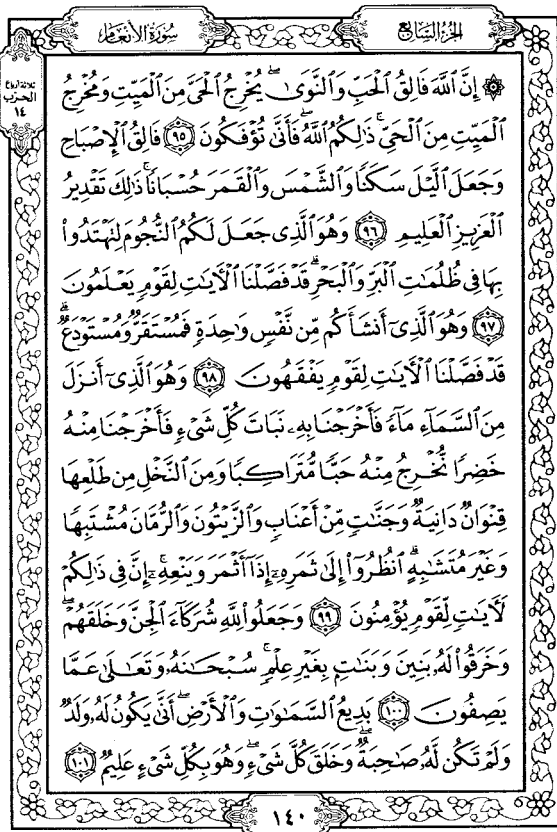 سُورَةُ الأَنعَام
الجُزْءُ السَّابِعُ
ثلاثة أرباع
الحزب
١٤
۞ إِنَّ ٱللَّهَ فَالِقُ ٱلْحَبِّ وَٱلنَّوَىٰۖ يُخْرِجُ ٱلْحَىَّ مِنَ ٱلْمَيِّتِ وَمُخْرِجُ
ٱلْمَيِّتِ مِنَ ٱلْحَىِّۚ ذَٰلِكُمُ ٱللَّهُۖ فَأَنَّىٰ تُؤْفَكُونَ ٩٥ فَالِقُ ٱلْإِصْبَاحِ
وَجَعَلَ ٱلَّيْلَ سَكَنًا وَٱلشَّمْسَ وَٱلْقَمَرَ حُسْبَانًاۚ ذَٰلِكَ تَقْدِيرُ
ٱلْعَزِيزِ ٱلْعَلِيمِ ٩٦ وَهُوَ ٱلَّذِى جَعَلَ لَكُمُ ٱلنُّجُومَ لِتَهْتَدُوا۟
بِهَا فِى ظُلُمَٰتِ ٱلْبَرِّ وَٱلْبَحْرِۗ قَدْ فَصَّلْنَا ٱلْءَايَٰتِ لِقَوْمٍ يَعْلَمُونَ
٩٧ وَهُوَ ٱلَّذِىٓ أَنشَأَكُم مِّن نَّفْسٍ وَٰحِدَةٍ فَمُسْتَقَرٌّ وَمُسْتَوْدَعٌۗ
قَدْ فَصَّلْنَا ٱلْءَايَٰتِ لِقَوْمٍ يَفْقَهُونَ ٩٨ وَهُوَ ٱلَّذِىٓ أَنزَلَ
مِنَ ٱلسَّمَآءِ مَآءً فَأَخْرَجْنَا بِهِۦ نَبَاتَ كُلِّ شَىْءٍ فَأَخْرَجْنَا مِنْهُ
خَضِرًا نُّخْرِجُ مِنْهُ حَبًّا مُّتَرَاكِبًا وَمِنَ ٱلنَّخْلِ مِن طَلْعِهَا
قِنْوَانٌ دَانِيَةٌ وَجَنَّٰتٍ مِّنْ أَعْنَابٍ وَٱلزَّيْتُونَ وَٱلرُّمَّانَ مُشْتَبِهًا
وَغَيْرَ مُتَشَٰبِهٍۗ ٱنظُرُوٓا۟ إِلَىٰ ثَمَرِهِۦٓ إِذَآ أَثْمَرَ وَيَنْعِهِۦٓۚ إِنَّ فِى ذَٰلِكُمْ
لَءَايَٰتٍ لِّقَوْمٍ يُؤْمِنُونَ ٩٩ وَجَعَلُوا۟ لِلَّهِ شُرَكَآءَ ٱلْجِنَّ وَخَلَقَهُمْۖ
وَخَرَقُوا۟ لَهُۥ بَنِينَ وَبَنَٰتٍۭ بِغَيْرِ عِلْمٍۚ سُبْحَٰنَهُۥ وَتَعَٰلَىٰ عَمَّا
يَصِفُونَ ١٠٠ بَدِيعُ ٱلسَّمَٰوَٰتِ وَٱلْأَرْضِۖ أَنَّىٰ يَكُونُ لَهُۥ وَلَدٌ
وَلَمْ تَكُن لَّهُۥ صَٰحِبَةٌۖ وَخَلَقَ كُلَّ شَىْءٍۖ وَهُوَ بِكُلِّ شَىْءٍ عَلِيمٌ ١٠١
١٤٠